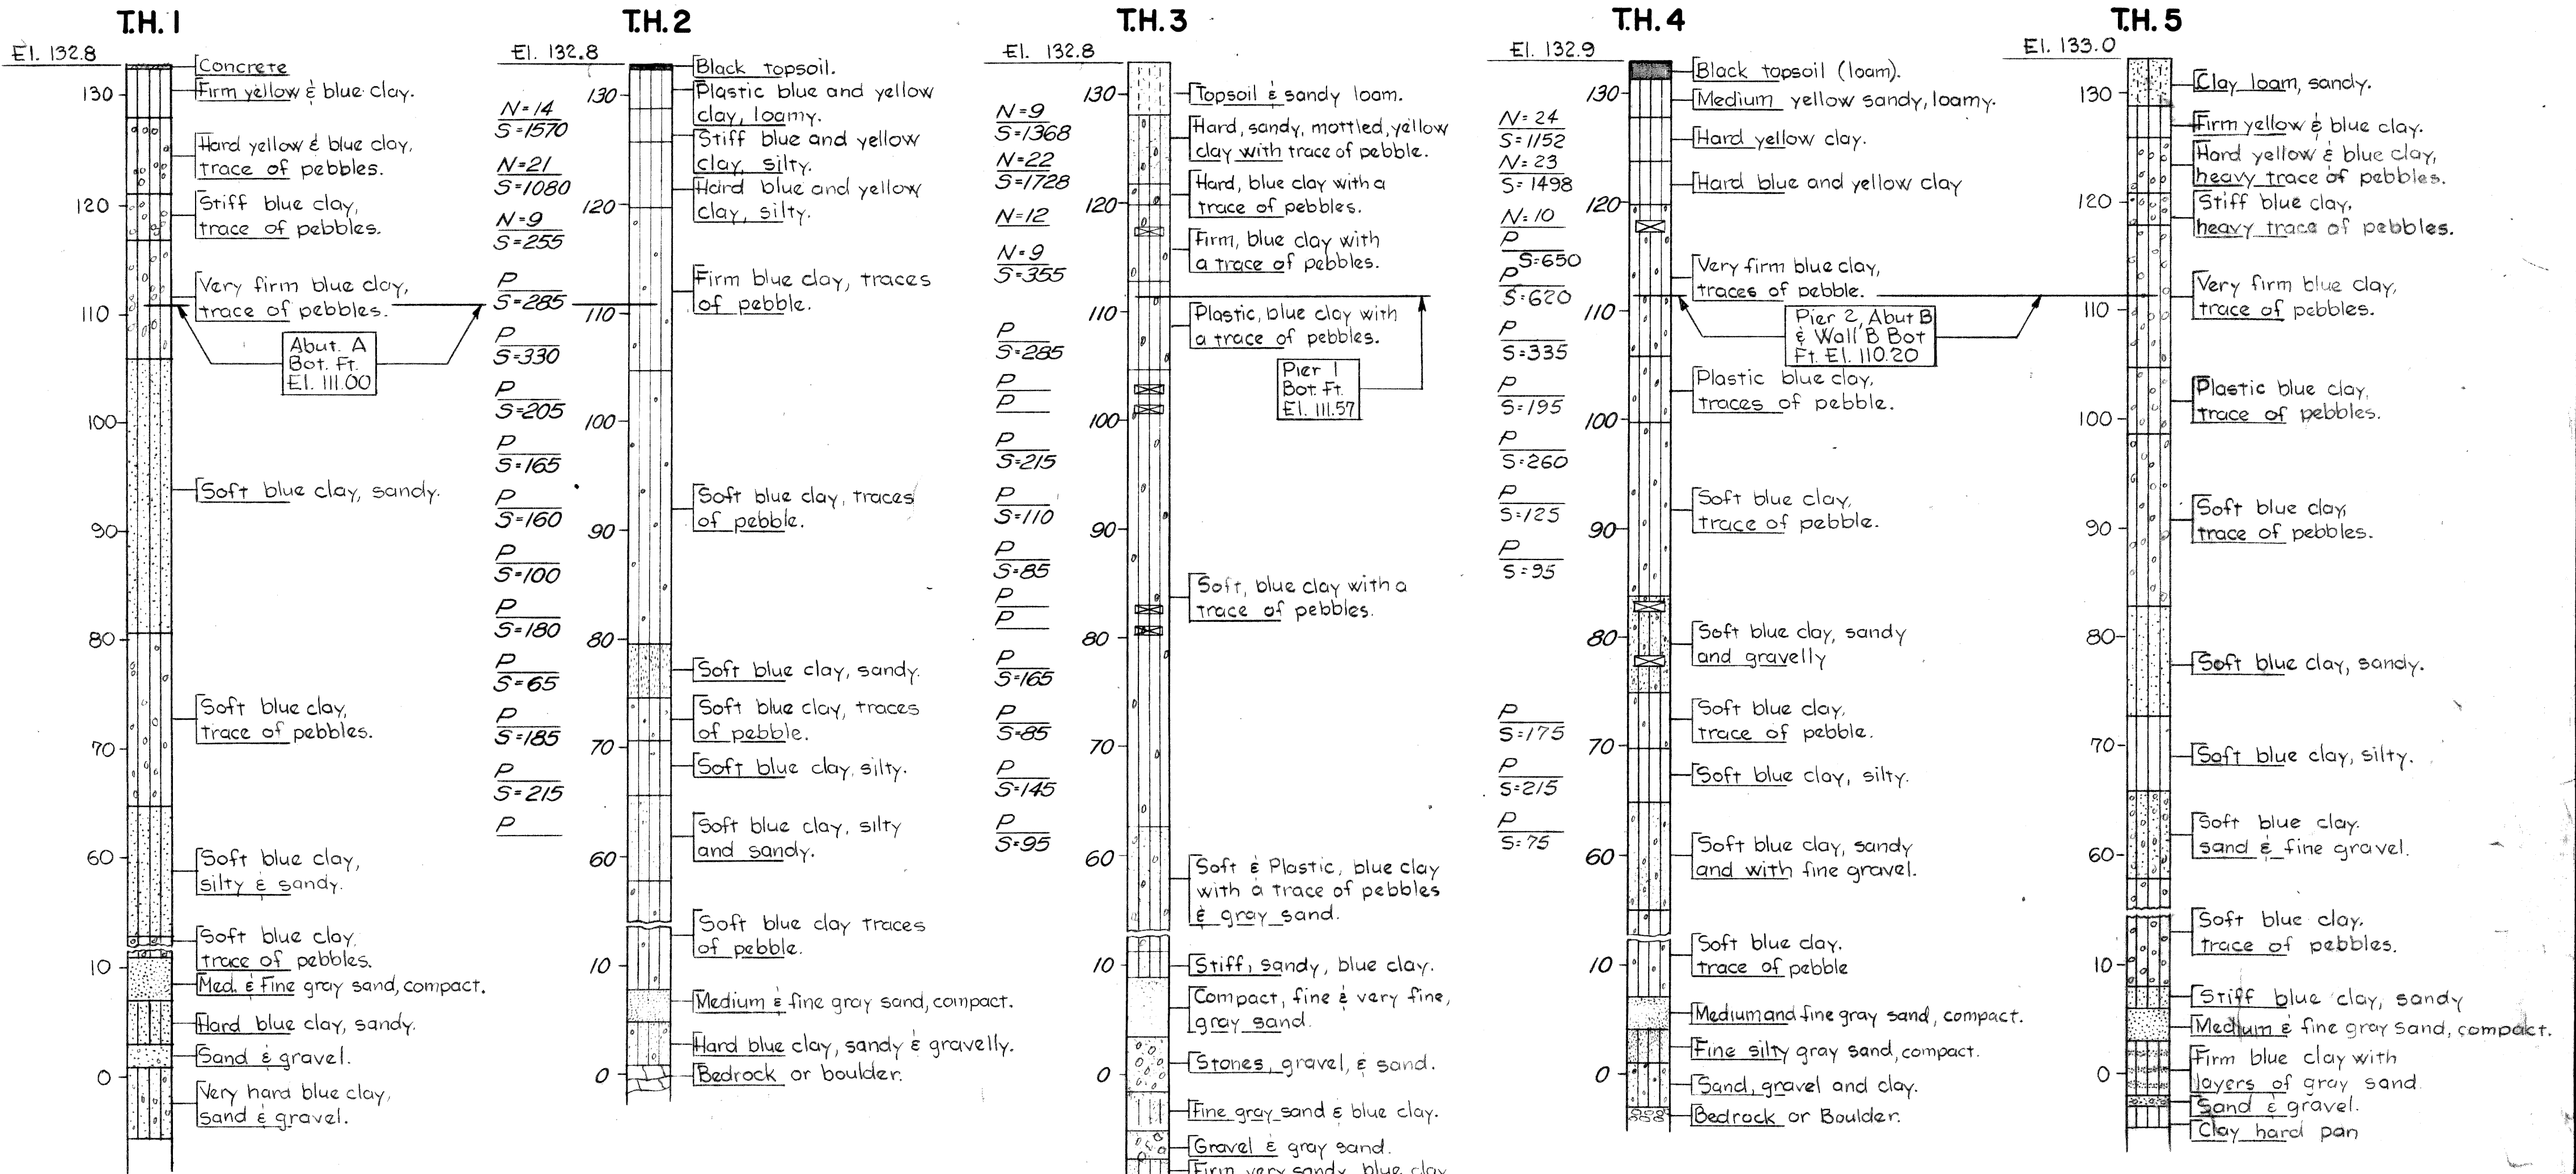 T.H. 1
El. 132.8
Concrete
Firm yellow & blue clay.
130
Hard yellow & blue clay,
trace of pebbles.
120
Stiff blue clay,
trace of pebbles.
Very firm blue clay,
trace of pebbles.
110
Abut. A
Bot. Ft.
El. 111.00
100
Soft blue clay, sandy.
90
80
Soft blue clay,
trace of pebbles.
70
60
Soft blue clay,
silty & sandy.
Soft blue clay,
trace of pebbles.
10
Med. & Fine gray sand, compact.
Hard blue clay, sandy.
Sand & gravel.
0
Very hard blue clay,
sand & gravel.
T.H. 2
El. 132.8
N=14
S=1570
N=21
S=1080
N=9
S=255
P
S=285
P
S=330
P
S=205
P
S=165
P
S=160
P
S=100
P
S=180
P
S=65
P
S=185
P
S=215
P
130
120
110
100
90
80
70
60
10
0
Black topsoil.
Plastic blue and yellow
clay, loamy.
Stiff blue and yellow
clay, silty.
Hard blue and yellow
clay, silty.
Firm blue clay, traces
of pebble.
Soft blue clay, traces
of pebble.
Soft blue clay, sandy.
Soft blue clay, traces
of pebble.
Soft blue clay, silty.
Soft blue clay, silty
and sandy.
Soft blue clay traces
of pebble.
Medium & fine gray sand, compact.
Hard blue clay, sandy & gravelly.
Bedrock or boulder.
T.H. 3
El. 132.8
N=9
S=1368
N=22
S=1728
N=12
N=9
S=355
P
S=285
P
P
P
S=215
P
S=110
P
S=85
P
P
P
S=165
P
S=85
P
S=145
P
S=95
130
120
110
100
90
80
70
60
10
0
Topsoil & sandy loam.
Hard, sandy, mottled, yellow
clay with trace of pebble.
Hard, blue clay with a
trace of pebbles.
Firm, blue clay with
a trace of pebbles.
Plastic, blue clay with
a trace of pebbles.
Pier 1
Bot. Ft.
El. 111.57
Soft, blue clay with a
trace of pebbles.
Soft & Plastic, blue clay
with a trace of pebbles
& gray sand.
Stiff, sandy, blue clay.
Compact, fine & very fine,
gray sand.
Stones, gravel, & sand.
Fine gray sand & blue clay.
Gravel & gray sand.
Firm very sandy blue clay
T.H. 4
El. 132.9
N=24
S=1152
N=23
S=1498
N=10
P
S=650
P
S=620
P
S=335
P
S=195
P
S=260
P
S=125
P
S=95
P
S=175
P
S=215
P
S=75
130
120
110
100
90
80
70
60
10
0
Black topsoil (loam).
Medium yellow sandy, loamy.
Hard yellow clay.
Hard blue and yellow clay
Very firm blue clay,
traces of pebble.
Pier 2, Abut B
& Wall B Bot
Ft. El. 110.20
Plastic blue clay,
traces of pebble.
Soft blue clay,
trace of pebble.
Soft blue clay, sandy
and gravelly
Soft blue clay,
trace of pebble.
Soft blue clay, silty.
Soft blue clay, sandy
and with fine gravel.
Soft blue clay.
trace of pebble
Medium and fine gray sand, compact.
Fine silty gray sand, compact.
Sand, gravel and clay.
Bedrock or Boulder.
T.H. 5
El. 133.0
130
120
110
100
90
80
70
60
10
0
Clay loam, sandy.
Firm yellow & blue clay.
Hard yellow & blue clay,
heavy trace of pebbles.
Stiff blue clay,
heavy trace of pebbles.
Very firm blue clay,
trace of pebbles.
Plastic blue clay,
trace of pebbles.
Soft blue clay,
trace of pebbles.
Soft blue clay, sandy.
Soft blue clay, silty.
Soft blue clay.
sand & fine gravel.
Soft blue clay.
trace of pebbles.
Stiff blue clay, sandy
Medium & fine gray sand, compact.
Firm blue clay with
layers of gray sand
Sand & gravel.
Clay hard pan